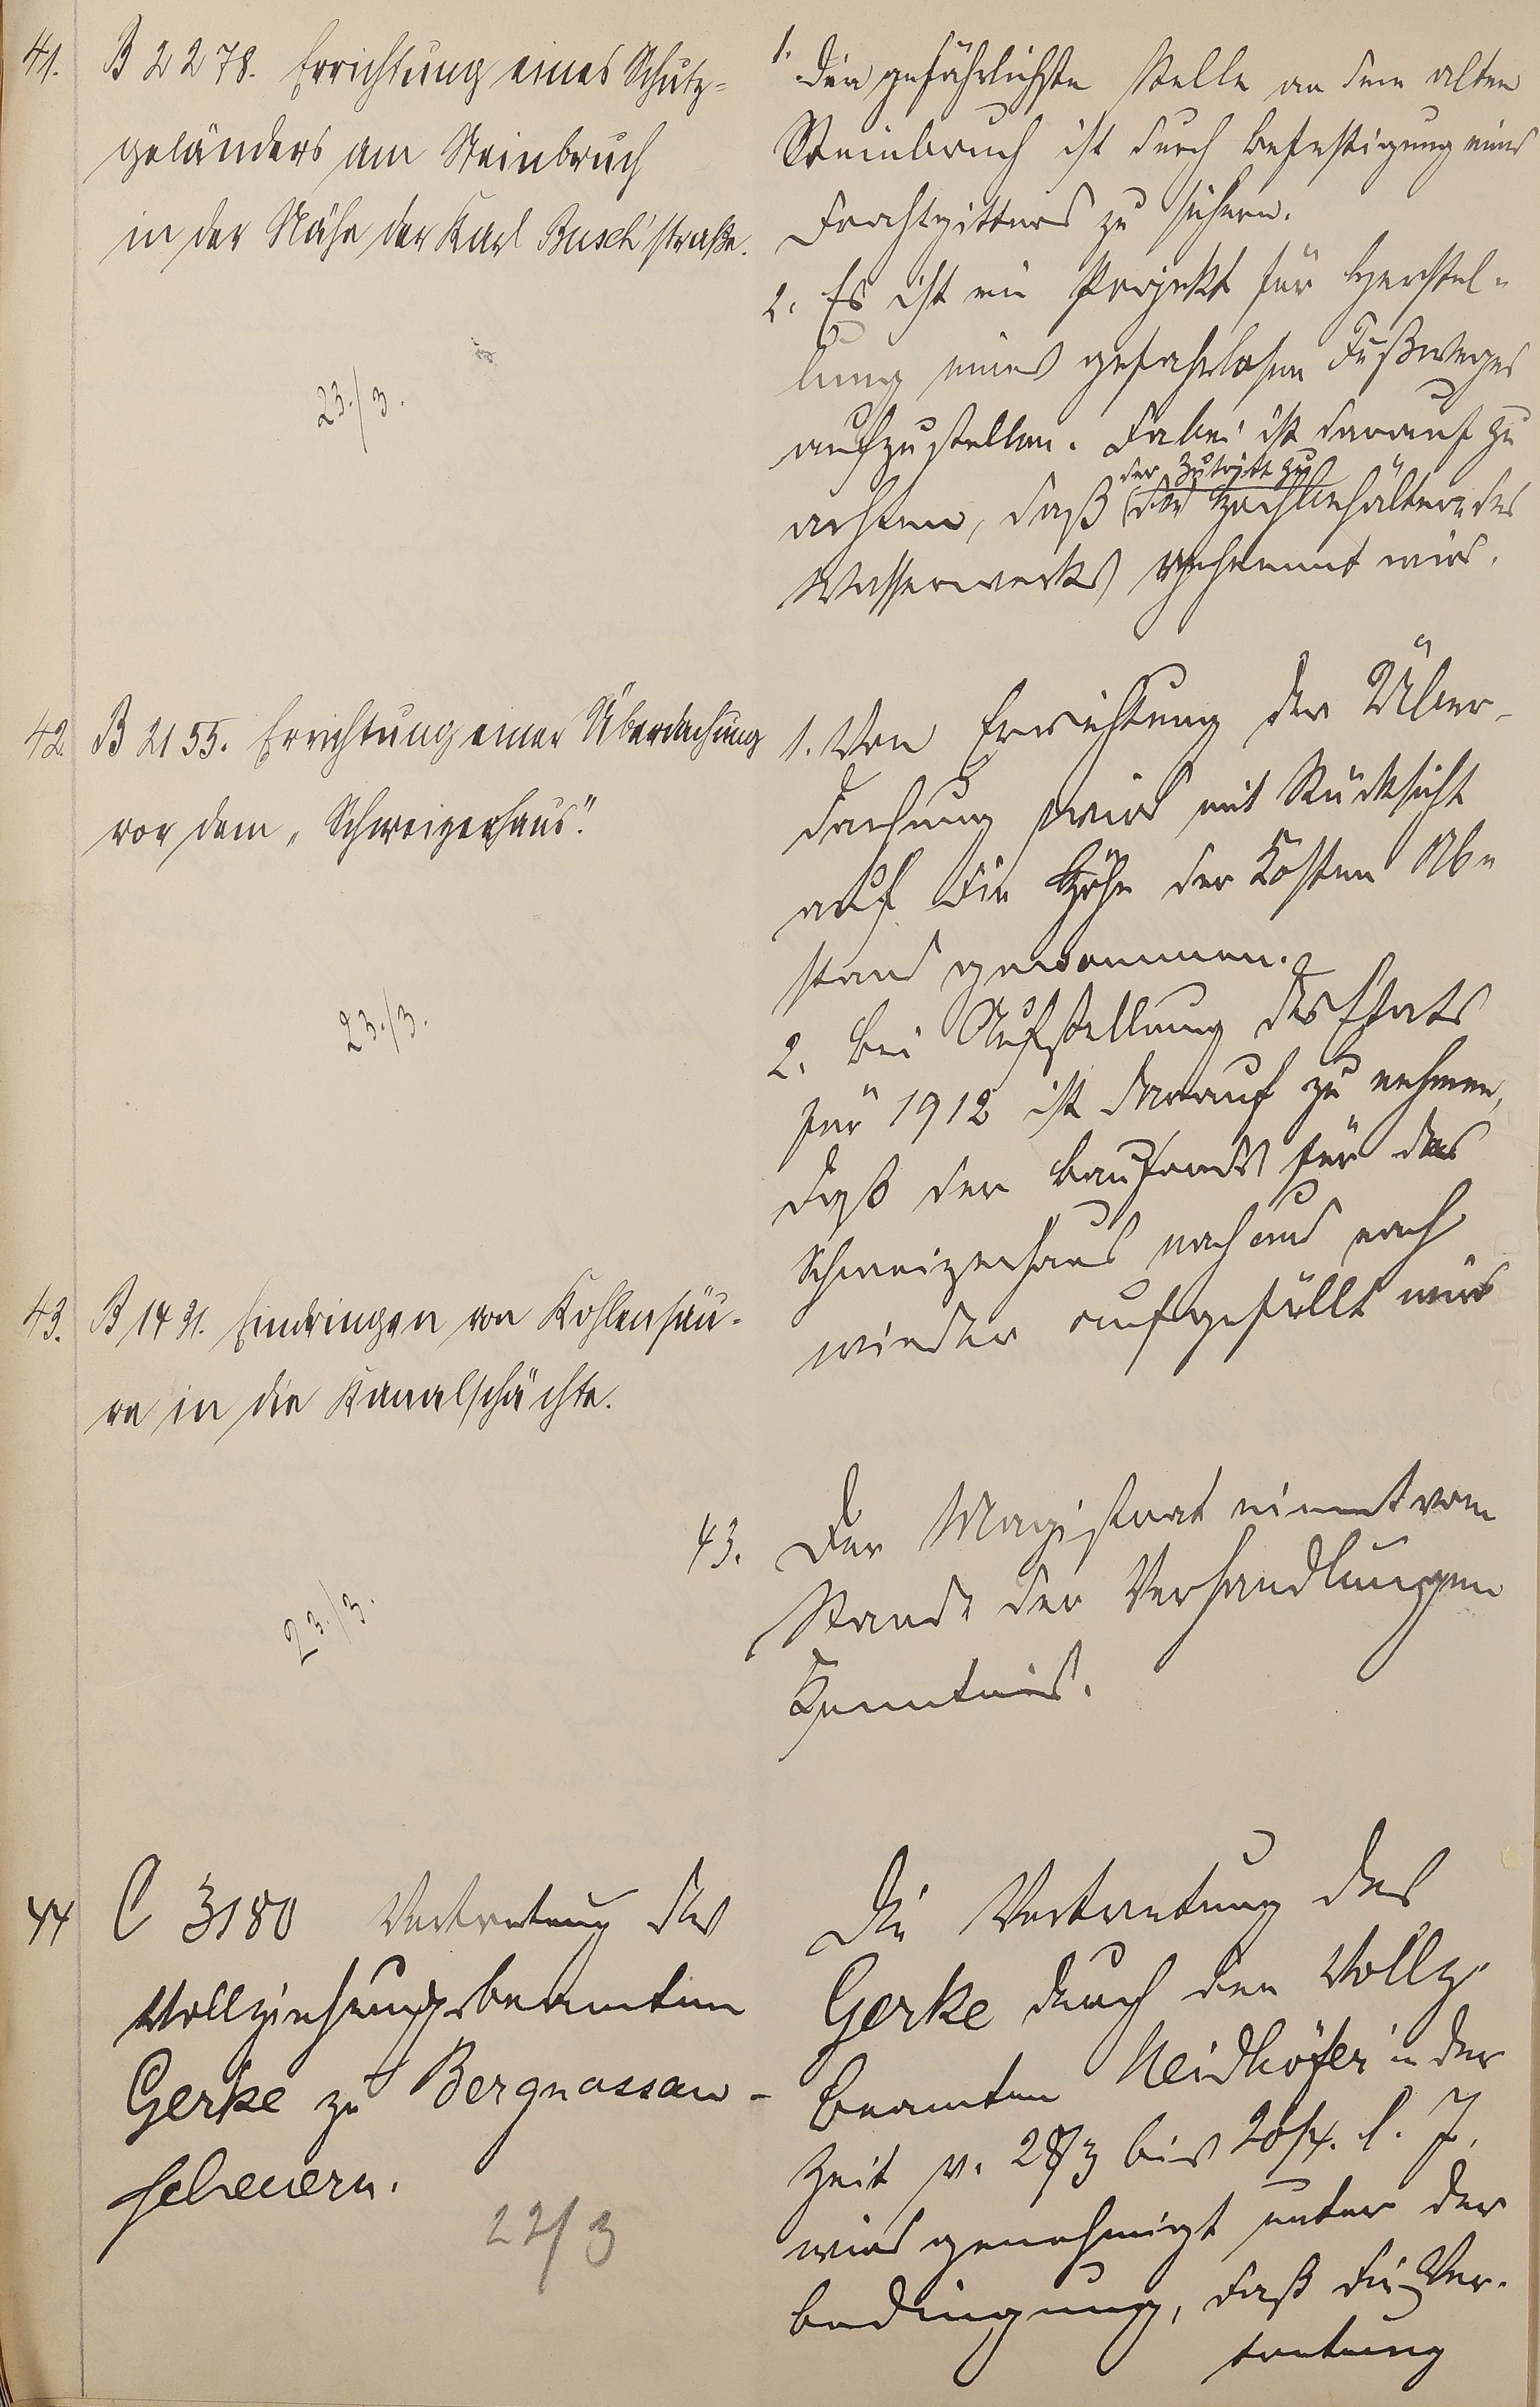 41.
B 2278. Errichtung eines Schutz-
geländers am Steinbruch
in der Nähe der Karl Busch'straße.
23./3.
1. Die gefährlichste Stelle an dem alten
Steinbruch ist durch Befestigung eines
Drahtgitters zu sichern.
2. Es ist ein Projekt für Herstel-
lung eines gefahrlosen Fußweges
aufzustellen. Dabei ist darauf zu
der Zutritt zu
achten, daß (die Hochbehältern des
Wasserwerks) gehemmt wird.
42.
B 2155. Errichtung einer Überdachung
vor dem „Schweizerhaus".
23./3.
1. Von Errichtung der Über-
dachung wird mit Rücksicht
auf die Höhe der Kosten Ab-
stand genommen.
2. Bei Aufstellung des Etats
für 1912 ist darauf zu nehmen,
daß der Baufonds für das
Schweizerhaus nach und nach
wieder aufgefüllt wird
43.
B 1431. Eindringen von Kohlensäu-
re in die Kanalschächte.
23./3.
43. Der Magistrat nimmt vom
Stande der Verhandlungen
Kenntnis.
44
C 3180 Vertretung des
Vollziehungsbeamten
Gerke zu Bergnassau-
scheuern.
22/3
Die Vertretung des
Gerke durch den Vollz.
beamten Neidhöfer in der
Zeit v. 28/3 bis 26/4. l. J.
wird genehmigt unter der
Bedingung, daß die Ver-
tretung